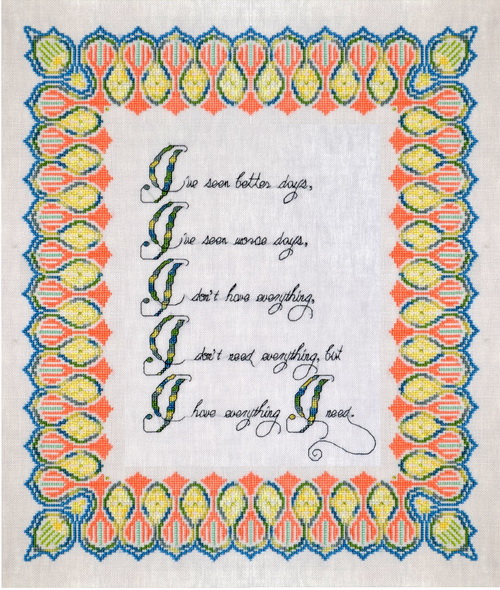 I've seen better days,
I've seen worse days,
I don't have everything,
I don't need everything, but
I have everything I need.